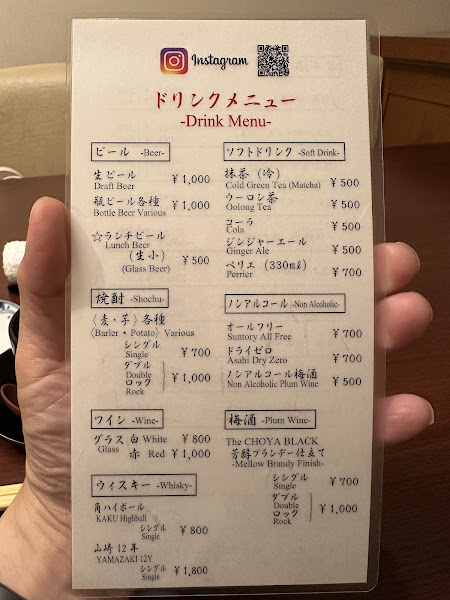 Instagram
ドリンクメニュー
-Drink Menu-
ビール -Beer-
生ビール
Draft Beer
¥1,000
瓶ビール各種
Bottle Beer Various
¥1,000
☆ランチビール
Lunch Beer
(生小)
(Glass Beer)
¥500
焼酎 -Shochu-
〈麦・芋〉各種
〈Barler・Potato〉Various
シングル
Single
¥700
ダブル
Double
ロック
Rock
¥1,000
ワイン -Wine-
グラス 白 White ¥800
Glass 赤 Red ¥1,000
ウィスキー -Whisky-
角ハイボール
KAKU Highball
シングル
Single
¥800
山崎12年
YAMAZAKI 12Y
シングル
Single
¥1,800
ソフトドリンク -Soft Drink-
抹茶(冷)
Cold Green Tea (Matcha)
¥500
ウーロン茶
Oolong Tea
¥500
コーラ
Cola
¥500
ジンジャーエール
Ginger Ale
¥500
ペリエ(330mℓ)
Perrier
¥700
ノンアルコール -Non Alcoholic-
オールフリー
Suntory All Free
¥700
ドライゼロ
Asahi Dry Zero
¥700
ノンアルコール梅酒
Non Alcoholic Plum Wine
¥500
梅酒 -Plum Wine-
The CHOYA BLACK
芳醇ブランデー仕立て
-Mellow Brandy Finish-
シングル
Single
¥700
ダブル
Double
ロック
Rock
¥1,000